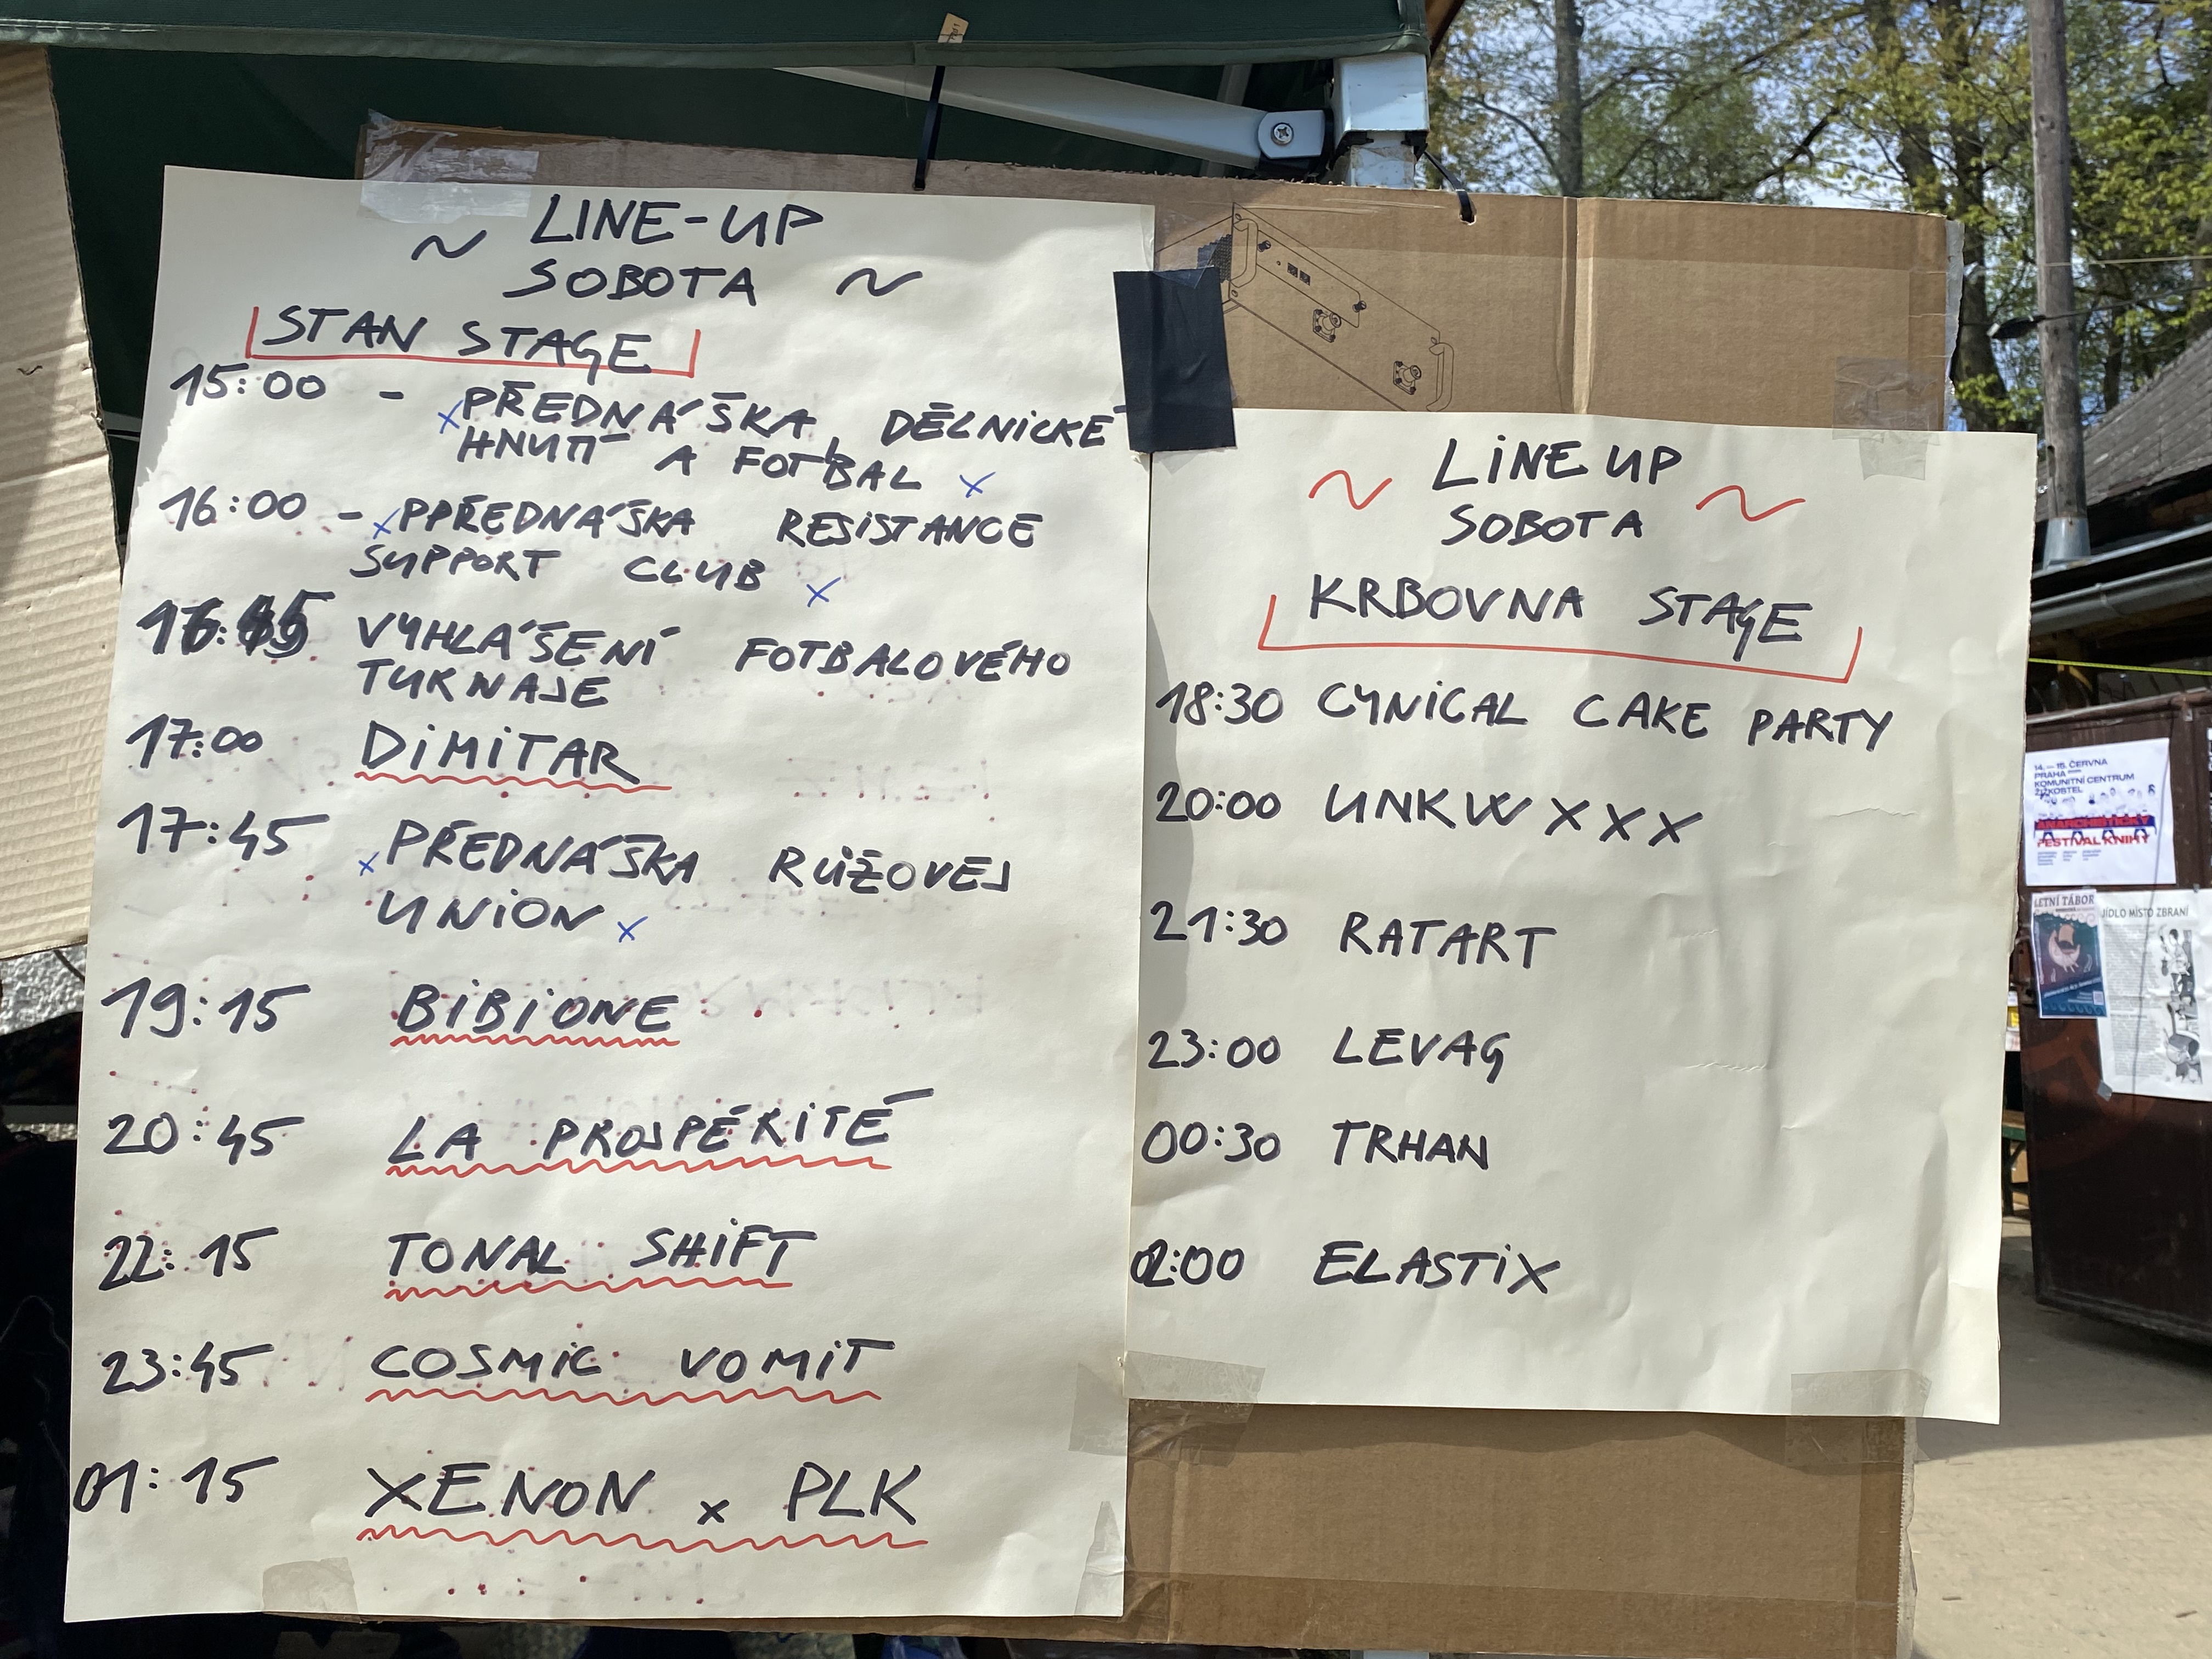 ~ LINE-UP
SOBOTA ~
STAN STAGE
15:00 - x PŘEDNÁŠKA, DĚLNICKÉ
HNUTÍ A FOTBAL x
16:00 - x PPŘEDNÁŠKA RESISTANCE
SUPPORT CLUB x
VYHLÁŠENÍ FOTBALOVÉHO
TURNAJE
17:00 DIMITAR
17:45 x PŘEDNÁŠKA RŮŽOVEJ
UNION x
19:15 BIBIONE
20:45 LA PROSPÉRITÉ
22:15 TONAL SHIFT
23:45 COSMIC VOMIT
01:15 XENON x PLK
~ LINE UP ~
SOBOTA
KRBOVNA STAGE
18:30 CYNICAL CAKE PARTY
20:00 UNKWXXX
21:30 RATART
23:00 LEVAG
00:30 TRHAN
02:00 ELASTIX
14.—15. ČERVNA
PRAHA
KOMUNITNÍ CENTRUM
ŽIŽKOSTEL
ANARCHISTICKÝ
FESTIVAL KNIHY
LETNÍ TÁBOR
JÍDLO MÍSTO ZBRANÍ